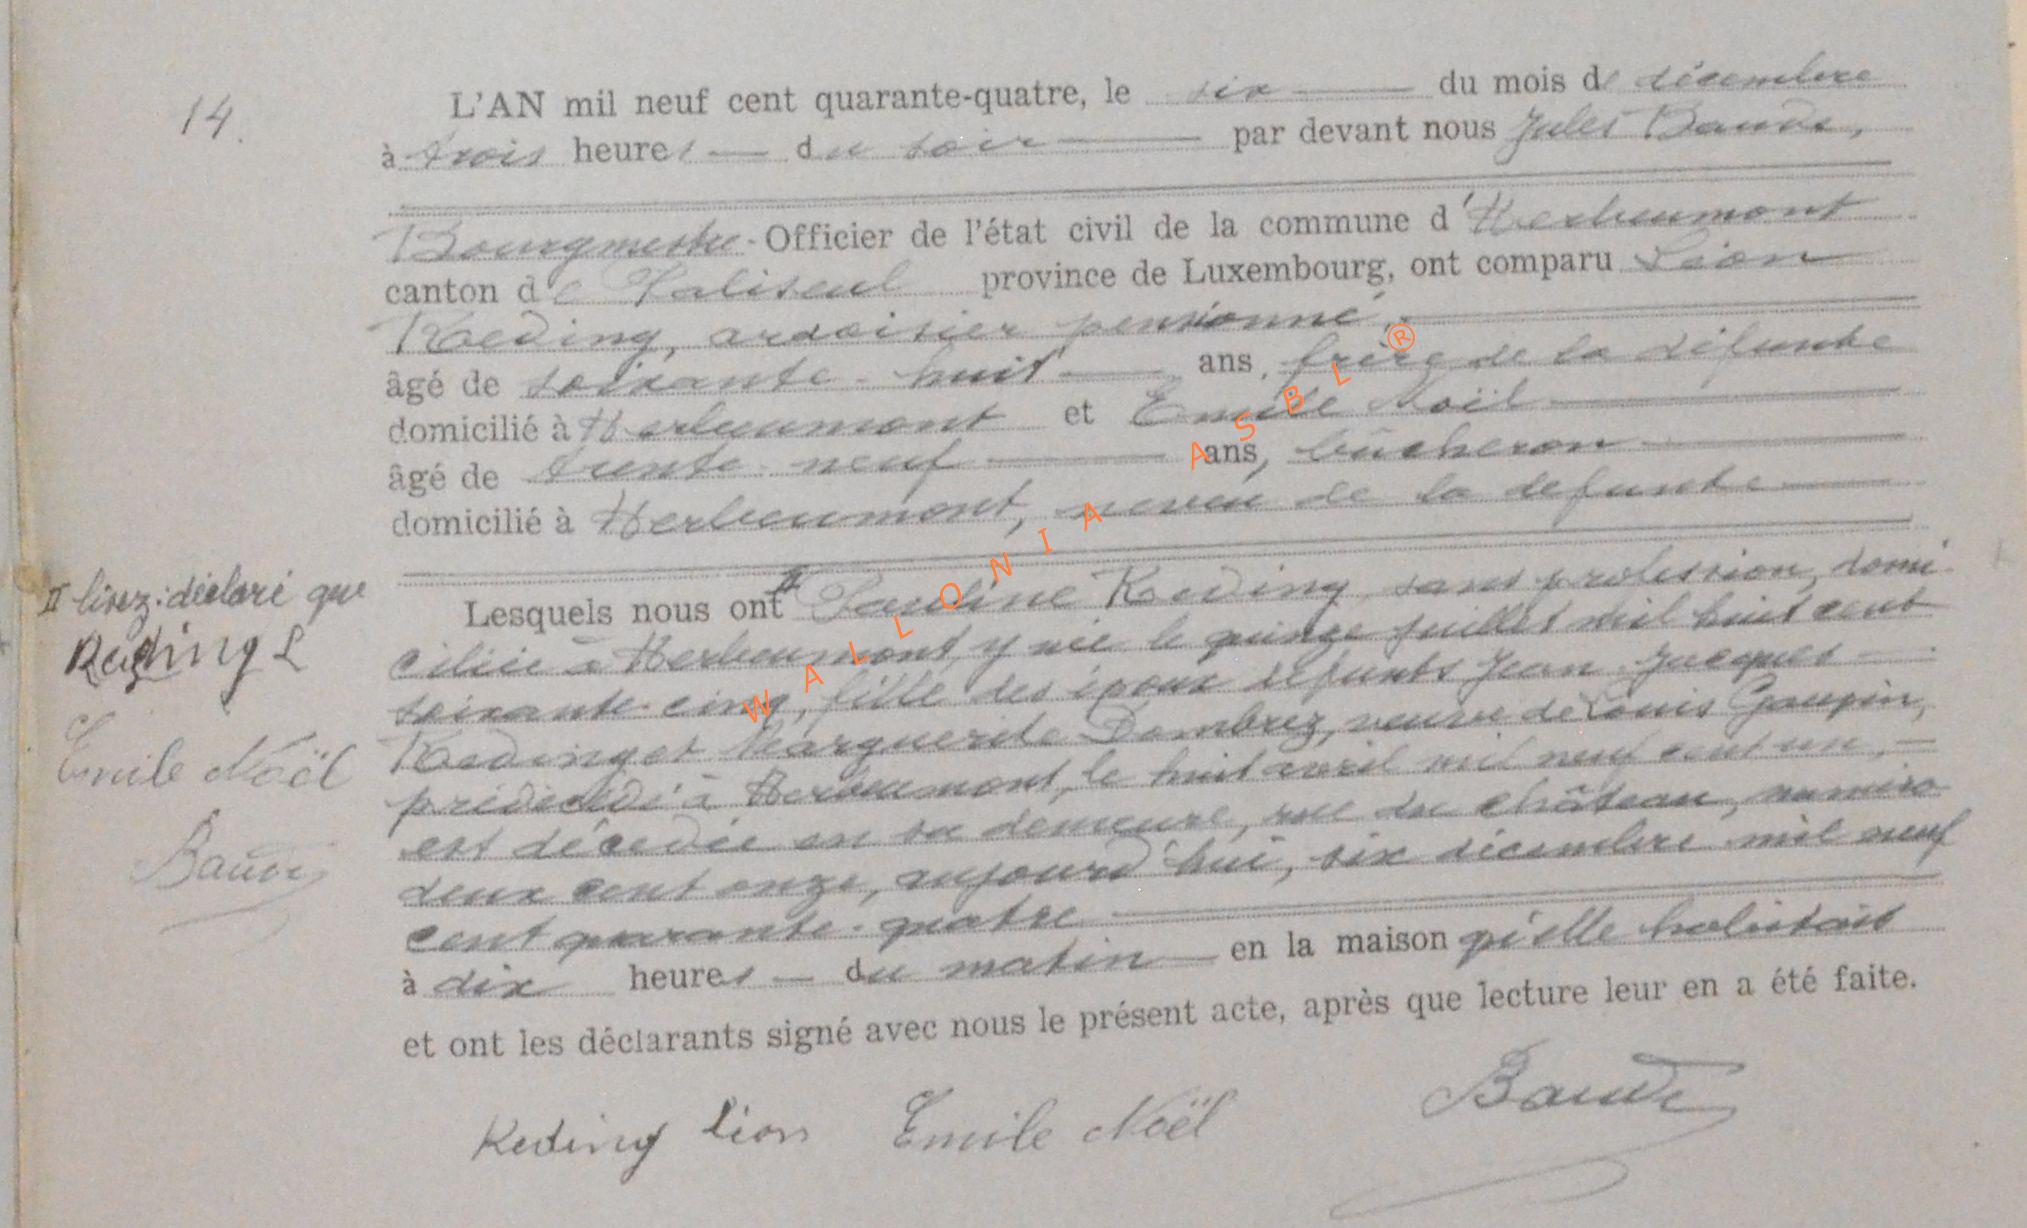 14.
L'AN mil neuf cent quarante-quatre, le six du mois de décembre
à trois heures du soir par devant nous Jules Baudé,
Bourgmestre - Officier de l'état civil de la commune d'Herbeumont
canton de Paliseul province de Luxembourg, ont comparu Léon
Reding, ardoisier pensionné,
âgé de soixante-huit ans, frère de la défunte
domicilié à Herbeumont et Emile Noël
âgé de trente-neuf ans, bûcheron
domicilié à Herbeumont, neveu de la défunte
II lisez: déclaré que
Reding L
Emile Noël
Baudé
Lesquels nous ont II Pauline Reding, sans profession, domi-
ciliée à Herbeumont, y née le quinze juillet mil huit cent
soixante-cinq, fille des époux défunts Jean Jacques
Reding et Marguerite Dombrez, veuve de Louis Gaupin,
prédécédé à Herbeumont, le huit avril mil neuf cent un,
est décédée en sa demeure, rue du château, numéro
deux cent onze, aujourd'hui, six décembre mil neuf
cent quarante-quatre
à dix heures du matin en la maison qu'elle habitait
et ont les déclarants signé avec nous le présent acte, après que lecture leur en a été faite.
Reding Léon Emile Noël Baudé
WALLONIA ASBL ®